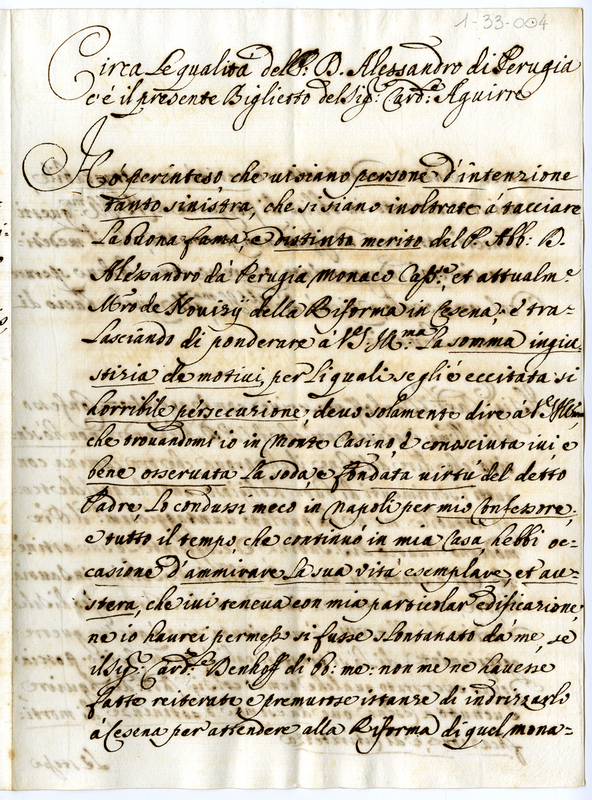 1-33-004
Circa le qualità del P. D. Alessandro di Perugia
c'è il presente Biglietto del Sig.r Card.l Aguirre
Hò perinteso che vi siano persone d'intenzione
tanto sinistra, che si siano inoltrate á tacciare
la buona fama, e distinto merito del P. Abb: D.
Alessandro dà Perugia, monaco et attualm.e
Mro de Novizij della Riforma in Cesena, é tra-
lasciando di ponderare á la somma ingiu-
stizia de motivi, per li quali se gli é eccitata si
horribile persecuzione, devo solamente dire á
che trovandomi io in Monte Casino, è conosciuta ivi e
bene osservata la soda, e fondata virtù del detto
Padre lo condussi meco in Napoli per mio Confessore,
e tutto il tempo, che continuò in mia Casa, hebbi oc-
casione d'ammirare la sua vita esemplare, et au-
stera, che ivi teneva con mia particolar edificazione,
ne io haurei permesso si fusse slontanato dà me, se
il Sig.r Card.le Denhoff di B: me: non me ne havesse
fatte reiterate, e premurose istanze di indrizzarlo
á Cesena per attendere alla Riforma di quel mona-